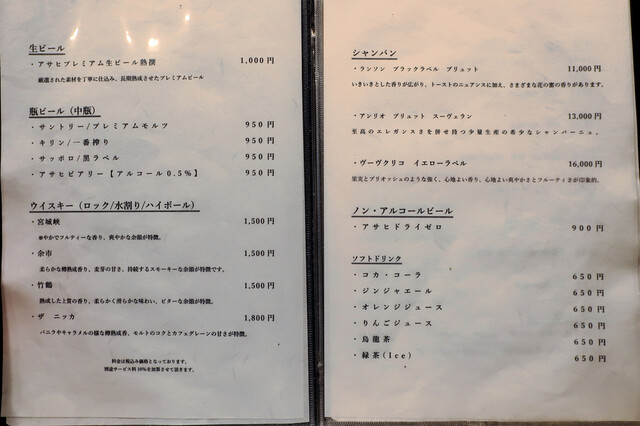 生ビール
・アサヒプレミアム生ビール熟撰 1,000円
厳選された素材を丁寧に仕込み、長期熟成させたプレミアムビール
瓶ビール（中瓶）
・サントリー/プレミアムモルツ 950円
・キリン/一番搾り 950円
・サッポロ/黒ラベル 950円
・アサヒビアリー【アルコール0.5%】 950円
ウイスキー（ロック/水割り/ハイボール）
・宮城峡 1,500円
華やかでフルティーな香り、爽やかな余韻が特徴。
・余市 1,500円
柔らかな樽熟成香、麦芽の甘さ、持続するスモーキーな余韻が特徴です。
・竹鶴 1,500円
熟成した上質の香り、柔らかく滑らかな味わい、ビターな余韻が特徴。
・ザ ニッカ 1,800円
バニラやキャラメルの様な樽熟成香、モルトのコクとカフェグレーンの甘さが特徴。
料金は税込み価格となっております。
別途サービス料10%を加算させて頂きます。
シャンパン
・ランソン ブラックラベル ブリュット 11,000円
いきいきとした香りが広がり、トーストのニュアンスに加え、さまざまな花の蜜の香りがあります。
・アンリオ ブリュット スーヴェラン 13,000円
至高のエレガンスさを併せ持つ少量生産の希少なシャンパーニュ。
・ヴーヴクリコ イエローラベル 16,000円
果実とブリオッシュのような強く、心地よい香り、心地よい爽やかさとフルーティさが印象的。
ノン・アルコールビール
・アサヒドライゼロ 900円
ソフトドリンク
・コカ・コーラ 650円
・ジンジャエール 650円
・オレンジジュース 650円
・りんごジュース 650円
・烏龍茶 650円
・緑茶(Ice) 650円